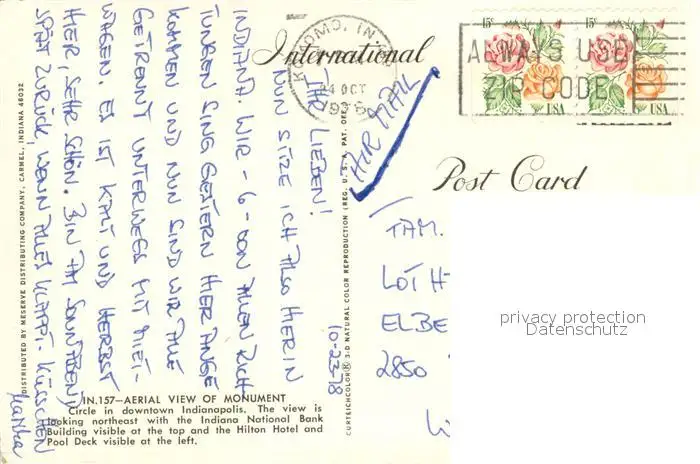 International
Post Card
KOKOMO, IN
24 OCT
1978
ALWAYS USE
ZIP CODE
15c
15c
USA
USA
AIR MAIL
10-23-78
IHR LIEBEN!
NUN SITZE ICH ALSO HIER IN
INDIANA. WIR - 6 - VON ALLEN RICH
TUNGEN SIND GESTERN HIER ANGE
KOMMEN UND NUN SIND WIR ALLE
GETRENNT UNTERWEGS MIT MIET-
WAGEN. ES IST KALT UND HERBST
HIER, SEHR SCHÖN. BIN AM SONNABEND
SPÄT ZURÜCK, WENN ALLES KLAPPT. KÜSSCHEN
FAM.
LOTH
ELBE
2850
privacy protection
Datenschutz
IN.157—AERIAL VIEW OF MONUMENT
Circle in downtown Indianapolis. The view is
looking northeast with the Indiana National Bank
Building visible at the top and the Hilton Hotel and
Pool Deck visible at the left.
DISTRIBUTED BY MESERVE DISTRIBUTING COMPANY, CARMEL, INDIANA 46032
CURTEICHCOLOR® 3-D NATURAL COLOR REPRODUCTION (REG. U.S.A. PAT. OFF.)